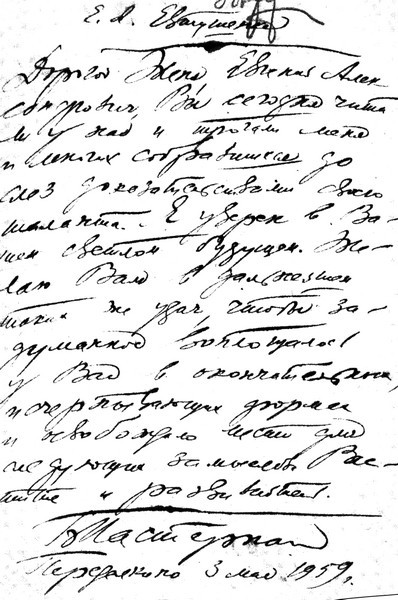 Е. А. Евтушенко
Дорогой Женя, Евгений Алек
сандрович, Вы сегодня чита
ли у нас и трогали меня
и многих собравшихся до
слез доказательствами своего
таланта. Я уверен в Ва-
шем светлом будущем. Же-
лаю Вам в дальнейшем
таких же удач, чтобы за-
думанное воплощалось
у Вас в окончательных,
исчерпывающих формах
и освобождало место для
следующих замыслов. Рас-
тите и развивайтесь.
Б Пастернак
Переделкино 3 мая 1959 г.